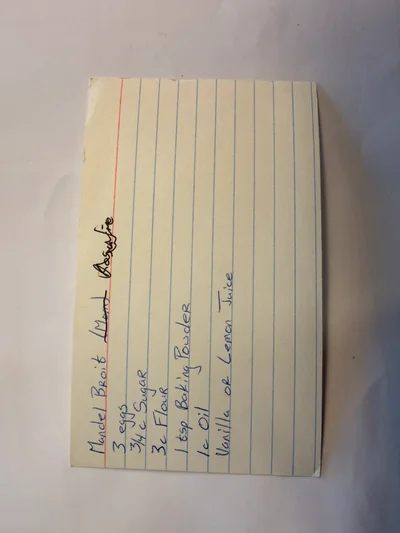 Mandel Broit (Mom)
3 eggs
3/4 c Sugar
3c Flour
1 tsp Baking Powder
1c Oil
Vanilla or Lemon Juice